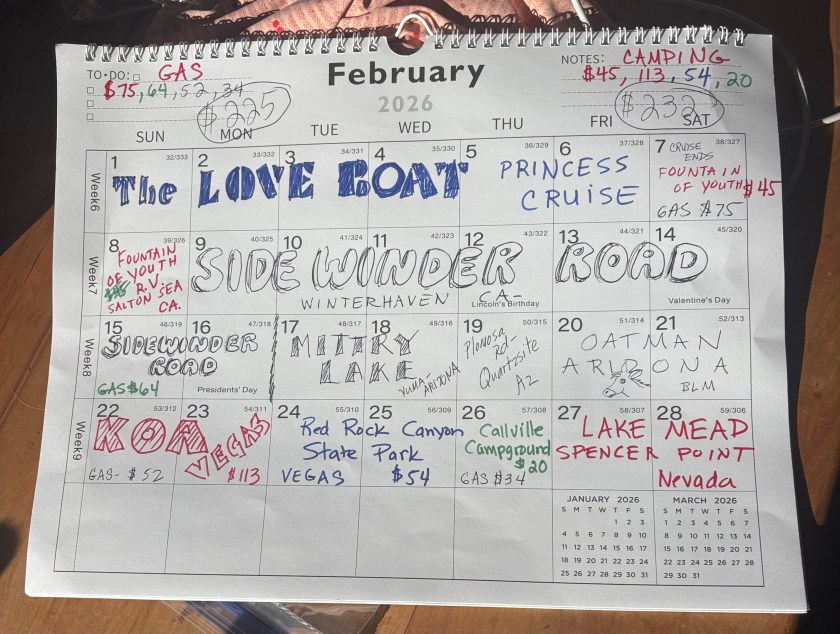 TO•DO: GAS
$75, 64, 52, 34
$225
February
2026
NOTES: CAMPING
$45, 113, 54, 20
$232
SUN MON TUE WED THU FRI SAT
Week6
1 32/333 2 33/332 3 34/331 4 35/330 5 36/329 6 37/328 7 38/327
The LOVE BOAT
PRINCESS
CRUISE
CRUISE
ENDS
FOUNTAIN
OF YOUTH $45
GAS $75
Week7
8 39/326 9 40/325 10 41/324 11 42/323 12 43/322 13 44/321 14 45/320
FOUNTAIN
OF YOUTH
R.V.
SALTON SEA
CA.
SIDE WINDER ROAD
WINTERHAVEN CA-
Lincoln's Birthday
Valentine's Day
Week8
15 46/319 16 47/318 17 48/317 18 49/316 19 50/315 20 51/314 21 52/313
SIDEWINDER
ROAD
GAS $64
Presidents' Day
MITTRY
LAKE
YUMA-ARIZONA
Plomosa
Rd-
Quartzsite
AZ
OATMAN
ARIZONA
BLM
Week9
22 53/312 23 54/311 24 55/310 25 56/309 26 57/308 27 58/307 28 59/306
KOA
VEGAS
GAS- $52
$113
Red Rock Canyon
State Park
VEGAS $54
Callville
Campground
$20
GAS $34
LAKE MEAD
SPENCER POINT
Nevada
JANUARY 2026
S M T W T F S
1 2 3
4 5 6 7 8 9 10
11 12 13 14 15 16 17
18 19 20 21 22 23 24
25 26 27 28 29 30 31
MARCH 2026
S M T W T F S
1 2 3 4 5 6 7
8 9 10 11 12 13 14
15 16 17 18 19 20 21
22 23 24 25 26 27 28
29 30 31